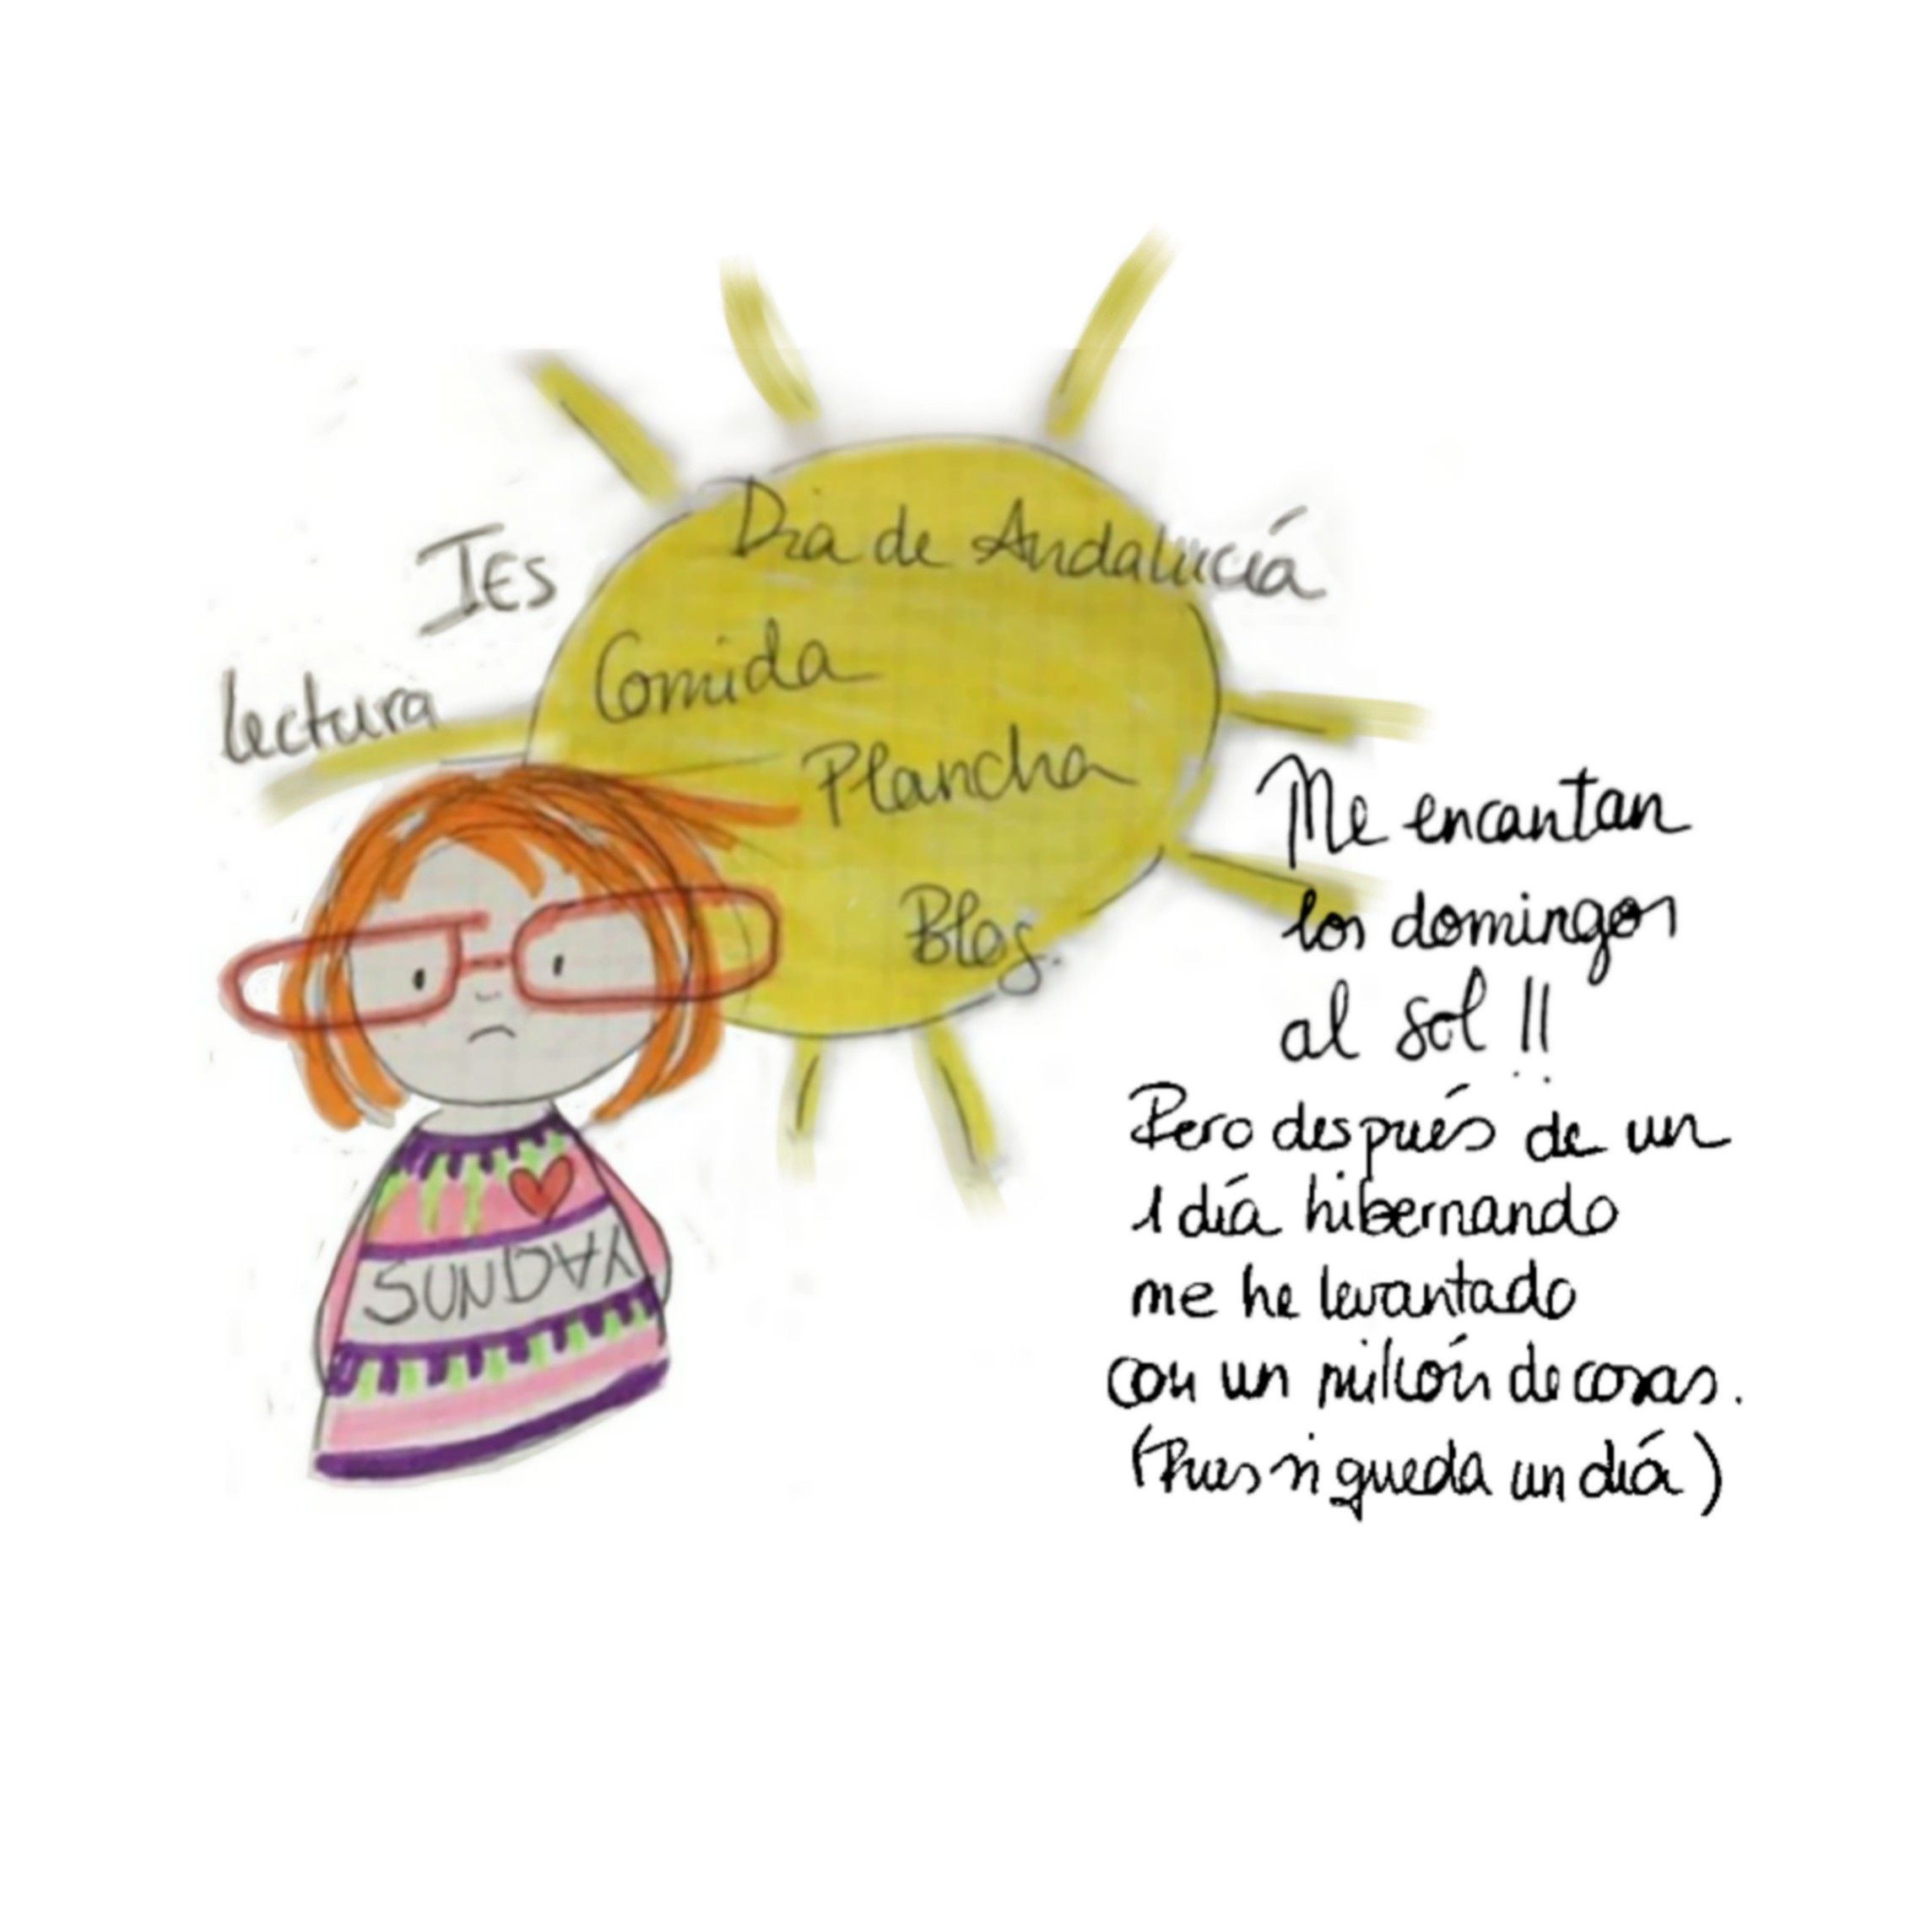 Dia de Andalucía
IES
Comida
lectura
Plancha
Blog.
SUNDAY
Me encantan
los domingos
al sol!!
Pero después de un
1 día hibernando
me he levantado
con un millón de cosas.
(Pues si queda un día)